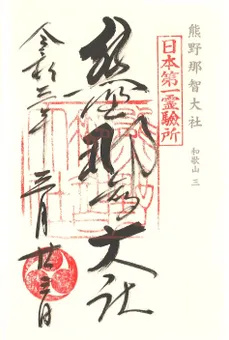 熊野那智大社
和歌山 三
日本第一霊験所
熊野那智大社
令和三年 三月廿三日